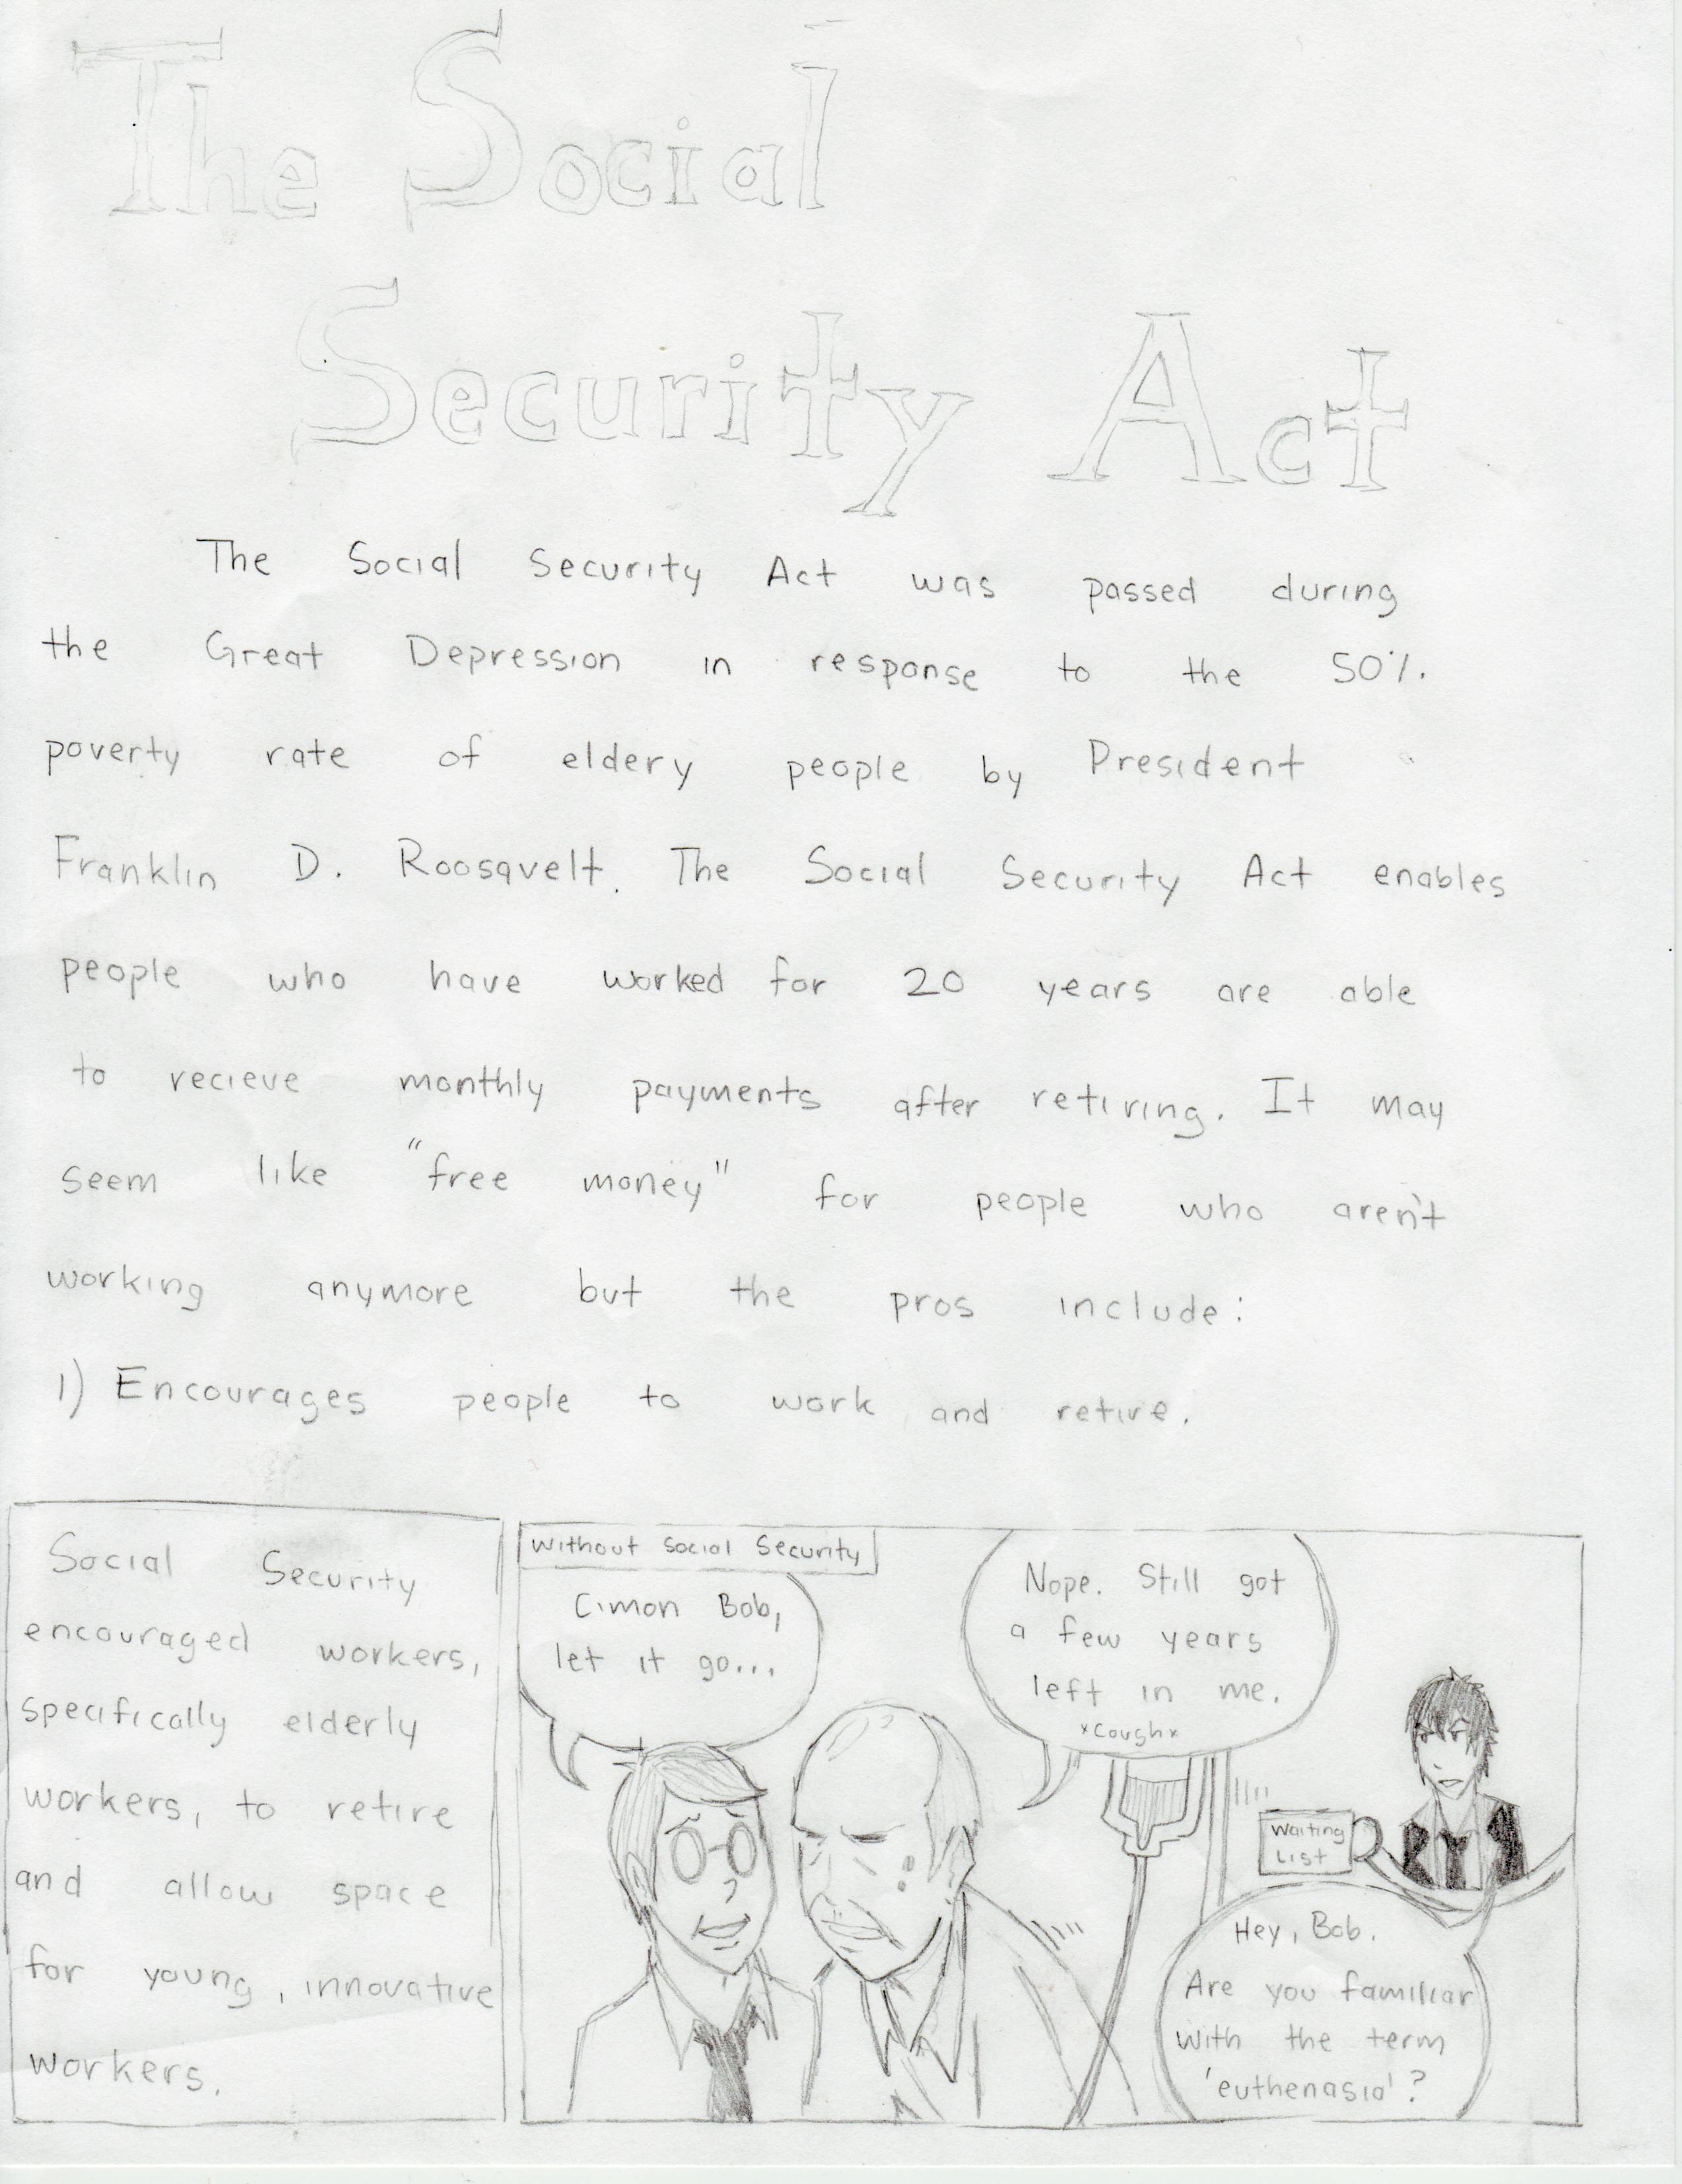 The Social
Security Act
The Social Security Act was passed during
the Great Depression in response to the 50%
poverty rate of eldery people by President
Franklin D. Roosavelt. The Social Security Act enables
people who have worked for 20 years are able
to recieve monthly payments after retiring. It may
seem like "free money" for people who aren't
working anymore but the pros include:
1) Encourages people to work and retire.
Social Security
encouraged workers,
specifically elderly
workers, to retire
and allow space
for young, innovative
workers.
Without Social Security
C'mon Bob,
let it go...
Nope. Still got
a few years
left in me.
*Cough*
Waiting
List
Hey, Bob.
Are you familiar
with the term
'euthenasia'?